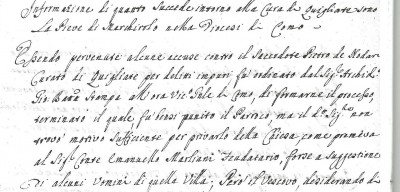 Informazione di quanto succede intorno alla Cura di Quigliate sotto
La Pieve di Marchirolo nella Diocesi di Como
Essendo pervenute alcune accuse contro il Sacerdote Pietro de Nodari
Curato di Quigliate per delitti impuri fù ordinato dal Sig.r Archid.
Gio Batta Stampa all'ora Vic.o Gñle di Como, di formarne il processo,
terminato il quale, fù bensi punito il Parroco, ma il d.o Sig.re non
trovò motivo sufficiente per privarlo della Chiesa come premeva
al Sig.r Conte Emanuello Marliani feudatario, forse a suggestione
di alcuni uomini di quella Villa; Però il Vescovo, desiderando di